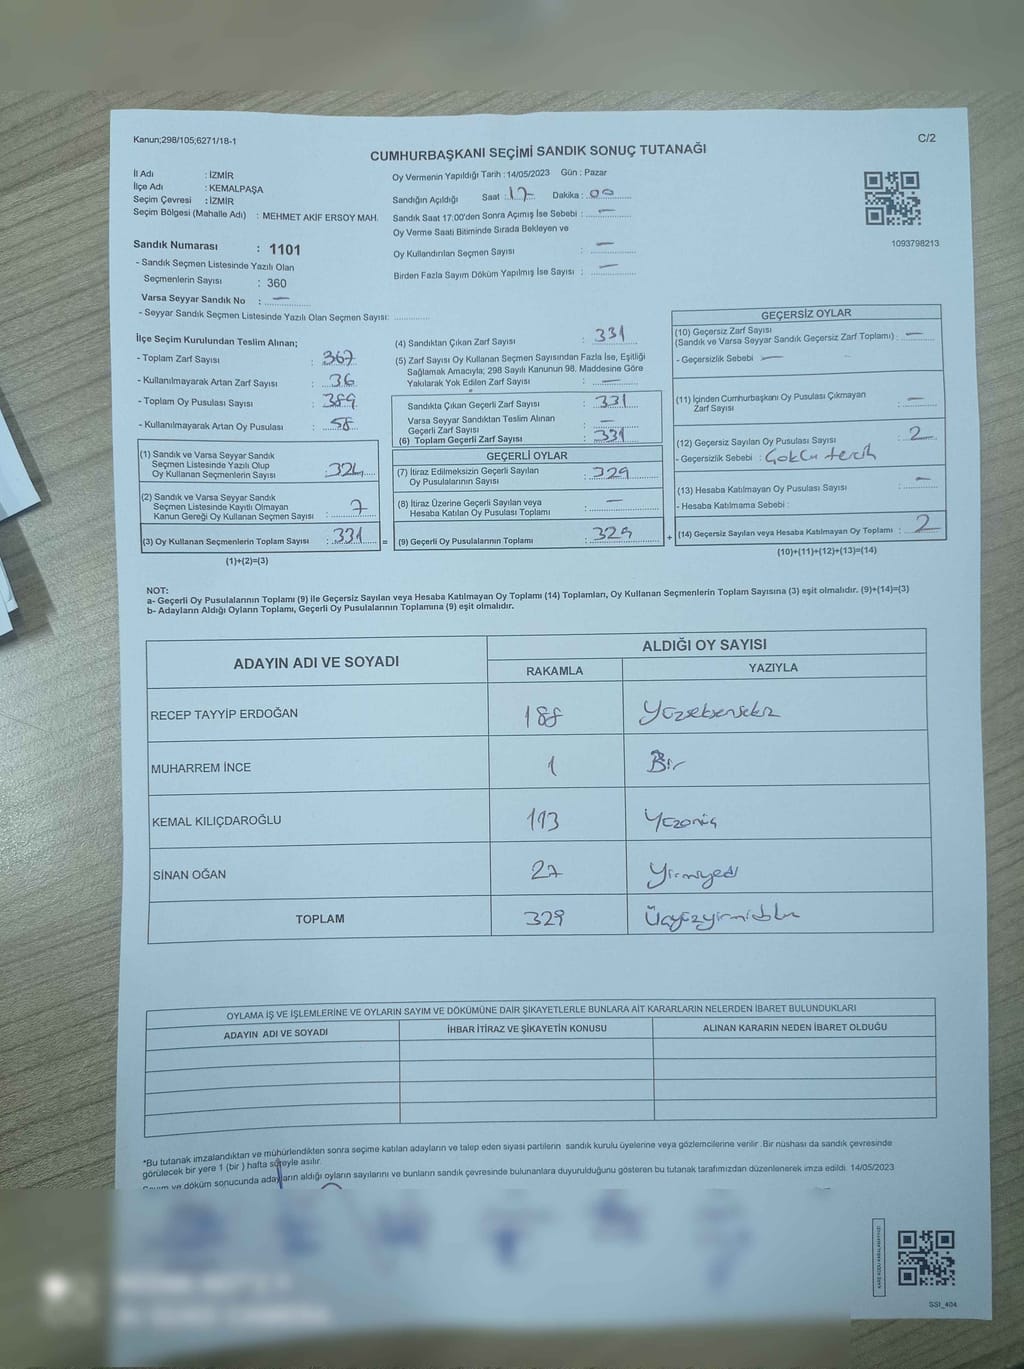 Kanun;298/105;6271/18-1
C/2
CUMHURBAŞKANI SEÇİMİ SANDIK SONUÇ TUTANAĞI
İl Adı : İZMİR
İlçe Adı : KEMALPAŞA
Seçim Çevresi : İZMİR
Seçim Bölgesi (Mahalle Adı) : MEHMET AKİF ERSOY MAH.
Sandık Numarası : 1101
- Sandık Seçmen Listesinde Yazılı Olan
Seçmenlerin Sayısı : 360
Varsa Seyyar Sandık No : —
- Seyyar Sandık Seçmen Listesinde Yazılı Olan Seçmen Sayısı:
Oy Vermenin Yapıldığı Tarih : 14/05/2023 Gün : Pazar
Sandığın Açıldığı Saat : 17 Dakika : 00
Sandık Saat 17:00'den Sonra Açımış İse Sebebi : —
Oy Verme Saati Bitiminde Sırada Bekleyen ve
Oy Kullandırılan Seçmen Sayısı : —
Birden Fazla Sayım Döküm Yapılmış İse Sayısı : —
1093798213
İlçe Seçim Kurulundan Teslim Alınan;
- Toplam Zarf Sayısı : 367
- Kullanılmayarak Artan Zarf Sayısı : 36
- Toplam Oy Pusulası Sayısı : 389
- Kullanılmayarak Artan Oy Pusulası : 58
(1) Sandık ve Varsa Seyyar Sandık
Seçmen Listesinde Yazılı Olup
Oy Kullanan Seçmenlerin Sayısı : 324
(2) Sandık ve Varsa Seyyar Sandık
Seçmen Listesinde Kayıtlı Olmayan
Kanun Gereği Oy Kullanan Seçmen Sayısı : 7
(3) Oy Kullanan Seçmenlerin Toplam Sayısı : 331 =
(1)+(2)=(3)
(4) Sandıktan Çıkan Zarf Sayısı : 331
(5) Zarf Sayısı Oy Kullanan Seçmen Sayısından Fazla İse, Eşitliği
Sağlamak Amacıyla; 298 Sayılı Kanunun 98. Maddesine Göre
Yakılarak Yok Edilen Zarf Sayısı : —
Sandıkta Çıkan Geçerli Zarf Sayısı : 331
Varsa Seyyar Sandıktan Teslim Alınan
Geçerli Zarf Sayısı : —
(6) Toplam Geçerli Zarf Sayısı : 331
GEÇERLİ OYLAR
(7) İtiraz Edilmeksizin Geçerli Sayılan
Oy Pusulalarının Sayısı : 329
(8) İtiraz Üzerine Geçerli Sayılan veya
Hesaba Katılan Oy Pusulası Toplamı : —
(9) Geçerli Oy Pusulalarının Toplamı : 329 +
GEÇERSİZ OYLAR
(10) Geçersiz Zarf Sayısı
(Sandık ve Varsa Seyyar Sandık Geçersiz Zarf Toplamı) : —
- Geçersizlik Sebebi : —
(11) İçinden Cumhurbaşkanı Oy Pusulası Çıkmayan
Zarf Sayısı : —
(12) Geçersiz Sayılan Oy Pusulası Sayısı : 2
- Geçersizlik Sebebi : Çoklu tercih
(13) Hesaba Katılmayan Oy Pusulası Sayısı : —
- Hesaba Katılmama Sebebi :
(14) Geçersiz Sayılan veya Hesaba Katılmayan Oy Toplamı : 2
(10)+(11)+(12)+(13)=(14)
NOT:
a- Geçerli Oy Pusulalarının Toplamı (9) ile Geçersiz Sayılan veya Hesaba Katılmayan Oy Toplamı (14) Toplamları, Oy Kullanan Seçmenlerin Toplam Sayısına (3) eşit olmalıdır. (9)+(14)=(3)
b- Adayların Aldığı Oyların Toplamı, Geçerli Oy Pusulalarının Toplamına (9) eşit olmalıdır.
ADAYIN ADI VE SOYADI
ALDIĞI OY SAYISI
RAKAMLA YAZIYLA
RECEP TAYYİP ERDOĞAN 188 Yüzseksensekiz
MUHARREM İNCE 1 Bir
KEMAL KILIÇDAROĞLU 113 Yüzonüç
SİNAN OĞAN 27 Yirmiyedi
TOPLAM 329 Üçyüzyirmidokuz
OYLAMA İŞ VE İŞLEMLERİNE VE OYLARIN SAYIM VE DÖKÜMÜNE DAİR ŞİKAYETLERLE BUNLARA AİT KARARLARIN NELERDEN İBARET BULUNDUKLARI
ADAYIN ADI VE SOYADI İHBAR İTİRAZ VE ŞİKAYETİN KONUSU ALINAN KARARIN NEDEN İBARET OLDUĞU
*Bu tutanak imzalandıktan ve mühürlendikten sonra seçime katılan adayların ve talep eden siyasi partilerin sandık kurulu üyelerine veya gözlemcilerine verilir .Bir nüshası da sandık çevresinde
görülecek bir yere 1 (bir ) hafta süreyle asılır.
Sayım ve döküm sonucunda adayların aldığı oyların sayılarını ve bunların sandık çevresinde bulunanlara duyurulduğunu gösteren bu tutanak tarafımızdan düzenlenerek imza edildi. 14/05/2023
SSI_404